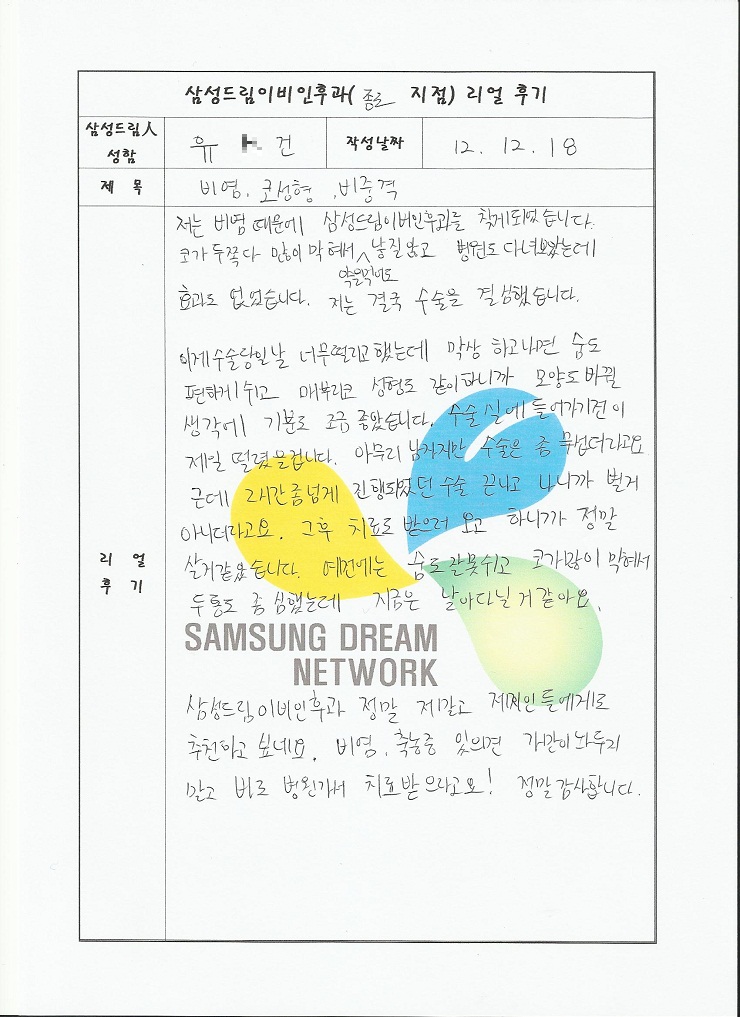 삼성드림이비인후과( 종로 지점) 리얼 후기
삼성드림人 성함
유 건
작성날짜
12. 12. 18
제 목
비염. 코성형 , 비중격
리 얼 후 기
저는 비염 때문에 삼성드림이비인후과를 찾게되었습니다.
코가 두쪽다 많이 막혀서 낳질않고 병원도 다녀보았는데
약을먹어도
효과도 없었습니다. 저는 결국 수술을 결심했습니다.
이제수술당일날 너무떨리고했는데 막상 하고나면 숨도
편하게쉬고 매부리코 성형도 같이하니까 모양도바뀔
생각에 기분도 조금 좋았습니다. 수술실에들어가기전이
제일 떨렸을겁니다. 아무리 남자지만 수술은 좀 무섭더라고요
근데 2시간좀넘게 진행되었던수술 끝나고 나니까 별거
아니더라고요. 그후 치료도 받으러 오고 하니까 정말
살거같았습니다. 예전에는 숨도잘못쉬고 코가많이막혀서
두통도 좀 심했는데 지금은 날아다닐거같아요.
SAMSUNG DREAM
NETWORK
삼성드림이비인후과 정말 제갈고 제지인들에게로
추천하고 싶네요. 비염, 축농증 있의견 가만이놔두지
말고 바로 병원가서 치료받으라고요! 정말감사합니다.